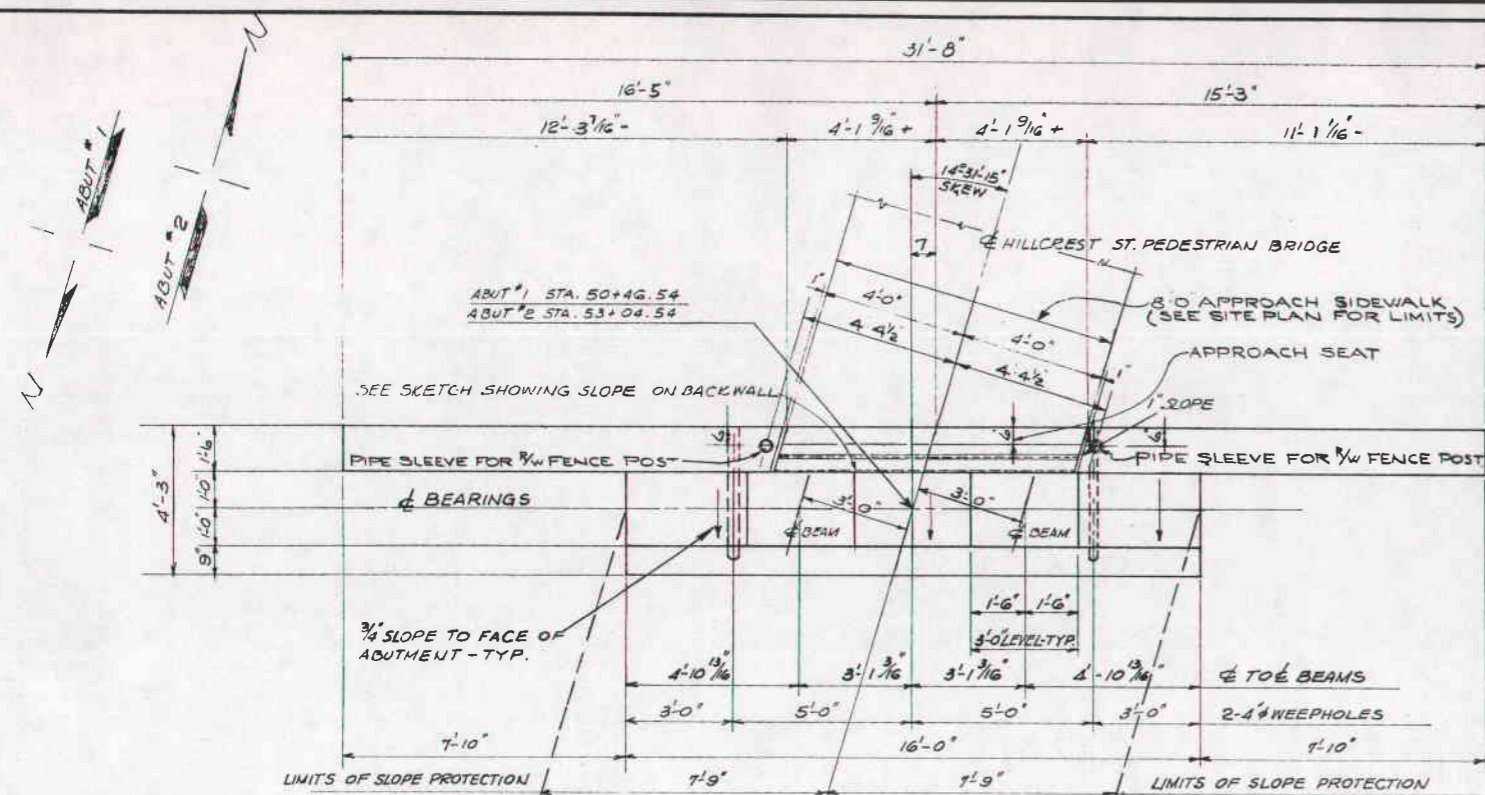 31'-8"
16'-5"
15'-3"
12'-3 7/16"-
4'-1 9/16"+
4'-1 9/16"+
11'-1 1/16"-
N
N
ABUT #1
ABUT #2
14°-31'-15"
SKEW
7
℄ HILLCREST ST. PEDESTRIAN BRIDGE
ABUT #1 STA. 50+46.54
ABUT #2 STA. 53+04.54
1"
4'-0"
4'-4½"
4'-0"
4'-4½"
1"
8'-0 APPROACH SIDEWALK
(SEE SITE PLAN FOR LIMITS)
APPROACH SEAT
SEE SKETCH SHOWING SLOPE ON BACKWALL
1" SLOPE
9"
9"
9"
PIPE SLEEVE FOR R/W FENCE POST
PIPE SLEEVE FOR R/W FENCE POST
4'-3"
1'-6"
1'-0"
1'-0"
9"
℄ BEARINGS
3'-0"
3'-0"
℄ BEAM
℄ BEAM
¾" SLOPE TO FACE OF
ABUTMENT - TYP.
1'-6"
1'-6"
3'-0" LEVEL-TYP.
4'-10 13/16"
3'-1 3/16"
3'-1 3/16"
4'-10 13/16"
℄ TO ℄ BEAMS
3'-0"
5'-0"
5'-0"
3'-0"
2-4"ϕ WEEPHOLES
7'-10"
16'-0"
7'-10"
LIMITS OF SLOPE PROTECTION
7'-9"
7'-9"
LIMITS OF SLOPE PROTECTION